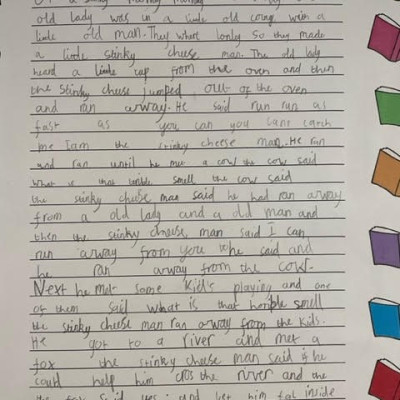 old lady was in a little old cotig with a
little old man. They where lonly so they made
a little stinky cheese man. The old lady
heard a little tap from the oven and then
the stinky cheese jumped out of the oven
and ran arway. He said run run as
fast as you can you cant catch
me I am the stinky cheese man. He ran
and ran until he met a cow the cow said
what is that smell the cow said
the sinky cheese man said he had ran arway
from a old lady and a old man and
then the stinky cheese man said I can
run arway from you he said and
he ran arway from the cow.
Next he met some kid's playing and one
of them said what is that smell
the stinky cheese man ran arway from the kids.
He got to a river and met a
fox the stinky cheese man said if he
could help him cros the river and the
fox said yes and let him inside